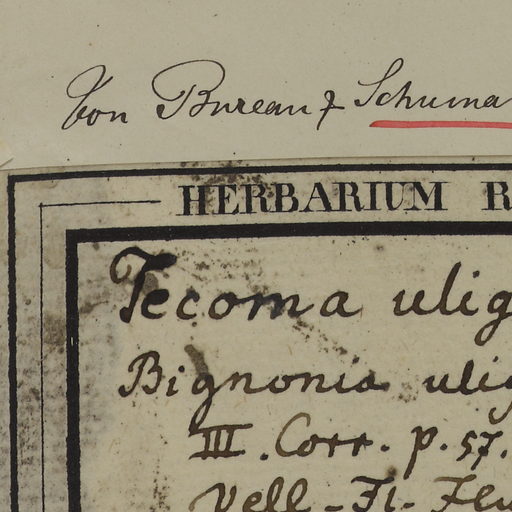 Von Bureau & Schuma
HERBARIUM R
Tecoma ulig
Bignonia ulig
III. Corr. p. 57.
Vell - Fl. Flu